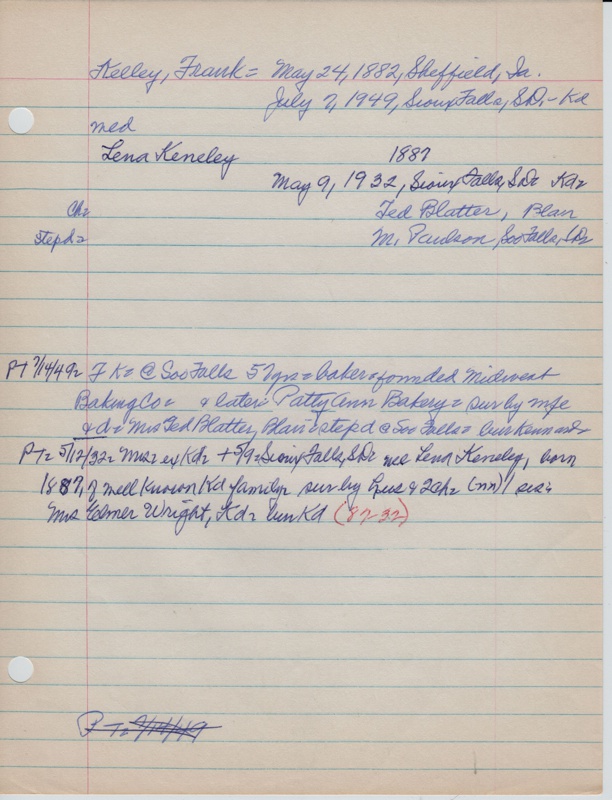 Kelley, Frank = May 24, 1882, Sheffield, Ia.
July 7, 1949, Sioux Falls, SD, - Kd
med
Lena Keneley 1887
May 9, 1932, Sioux Falls, SD= Kd=
Ch= Ted Blatter, Blair
stepd= M. Paulson, Soo Falls, SD=
PT 7/14/49= F K= @ Soo Falls 57yrs= baker= founded Midwest
Baking Co= & later Patty Ann Bakery= sur by wfe
& d= Mrs Ted Blatter, Blair= stepd @ Soo Falls= bur Kennard=
PT= 5/12/32= Mrs= ex Kd= + 5/9= Sioux Falls, SD= nee Lena Keneley, born
1887, of well known Kd family= sur by hus & 2 ch= (nn) / sis=
Mrs Elmer Wright, Kd= bur Kd (87-32)
P T= 7/14/49